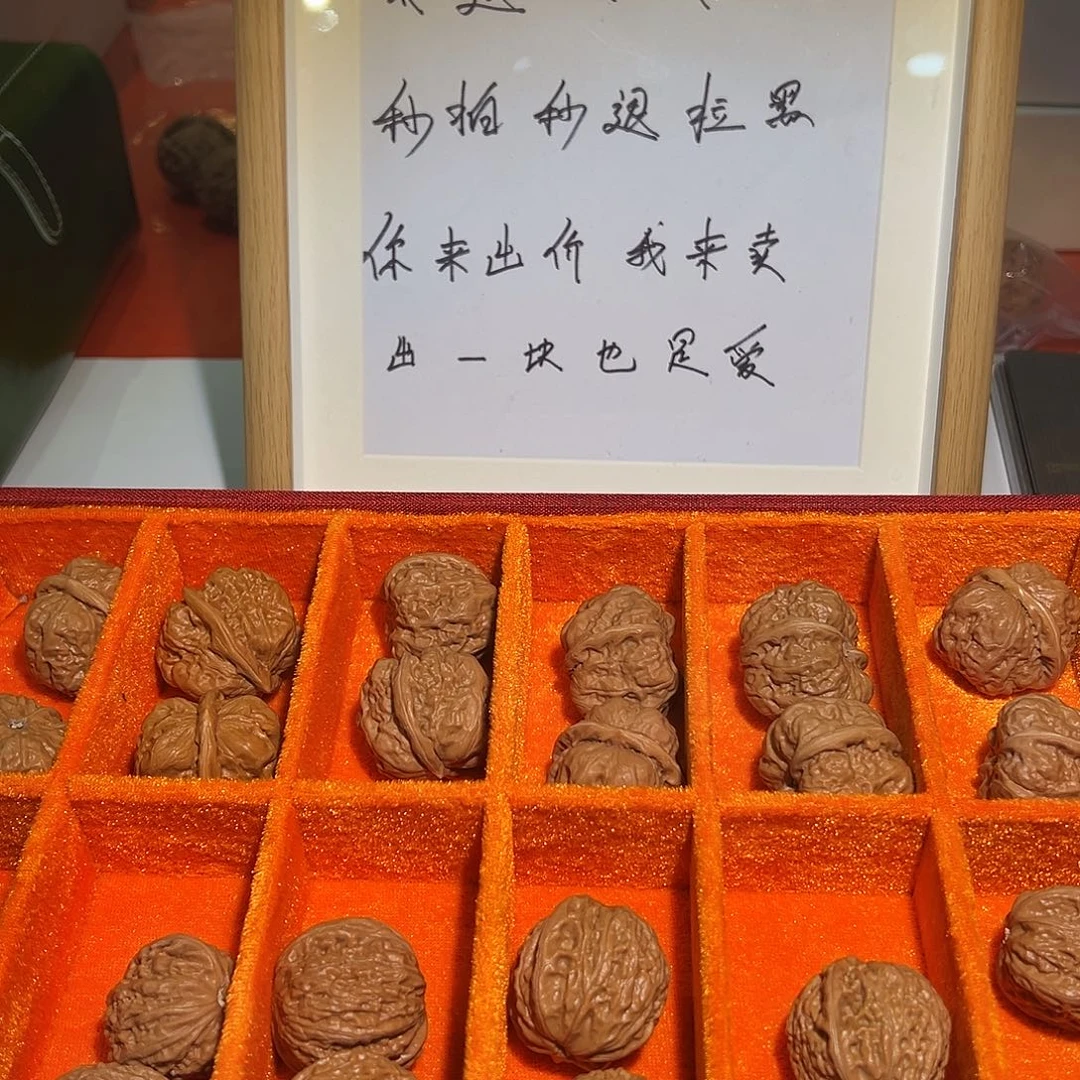 秒拍秒退拉黑
你来出价 我来卖
出一块也是爱